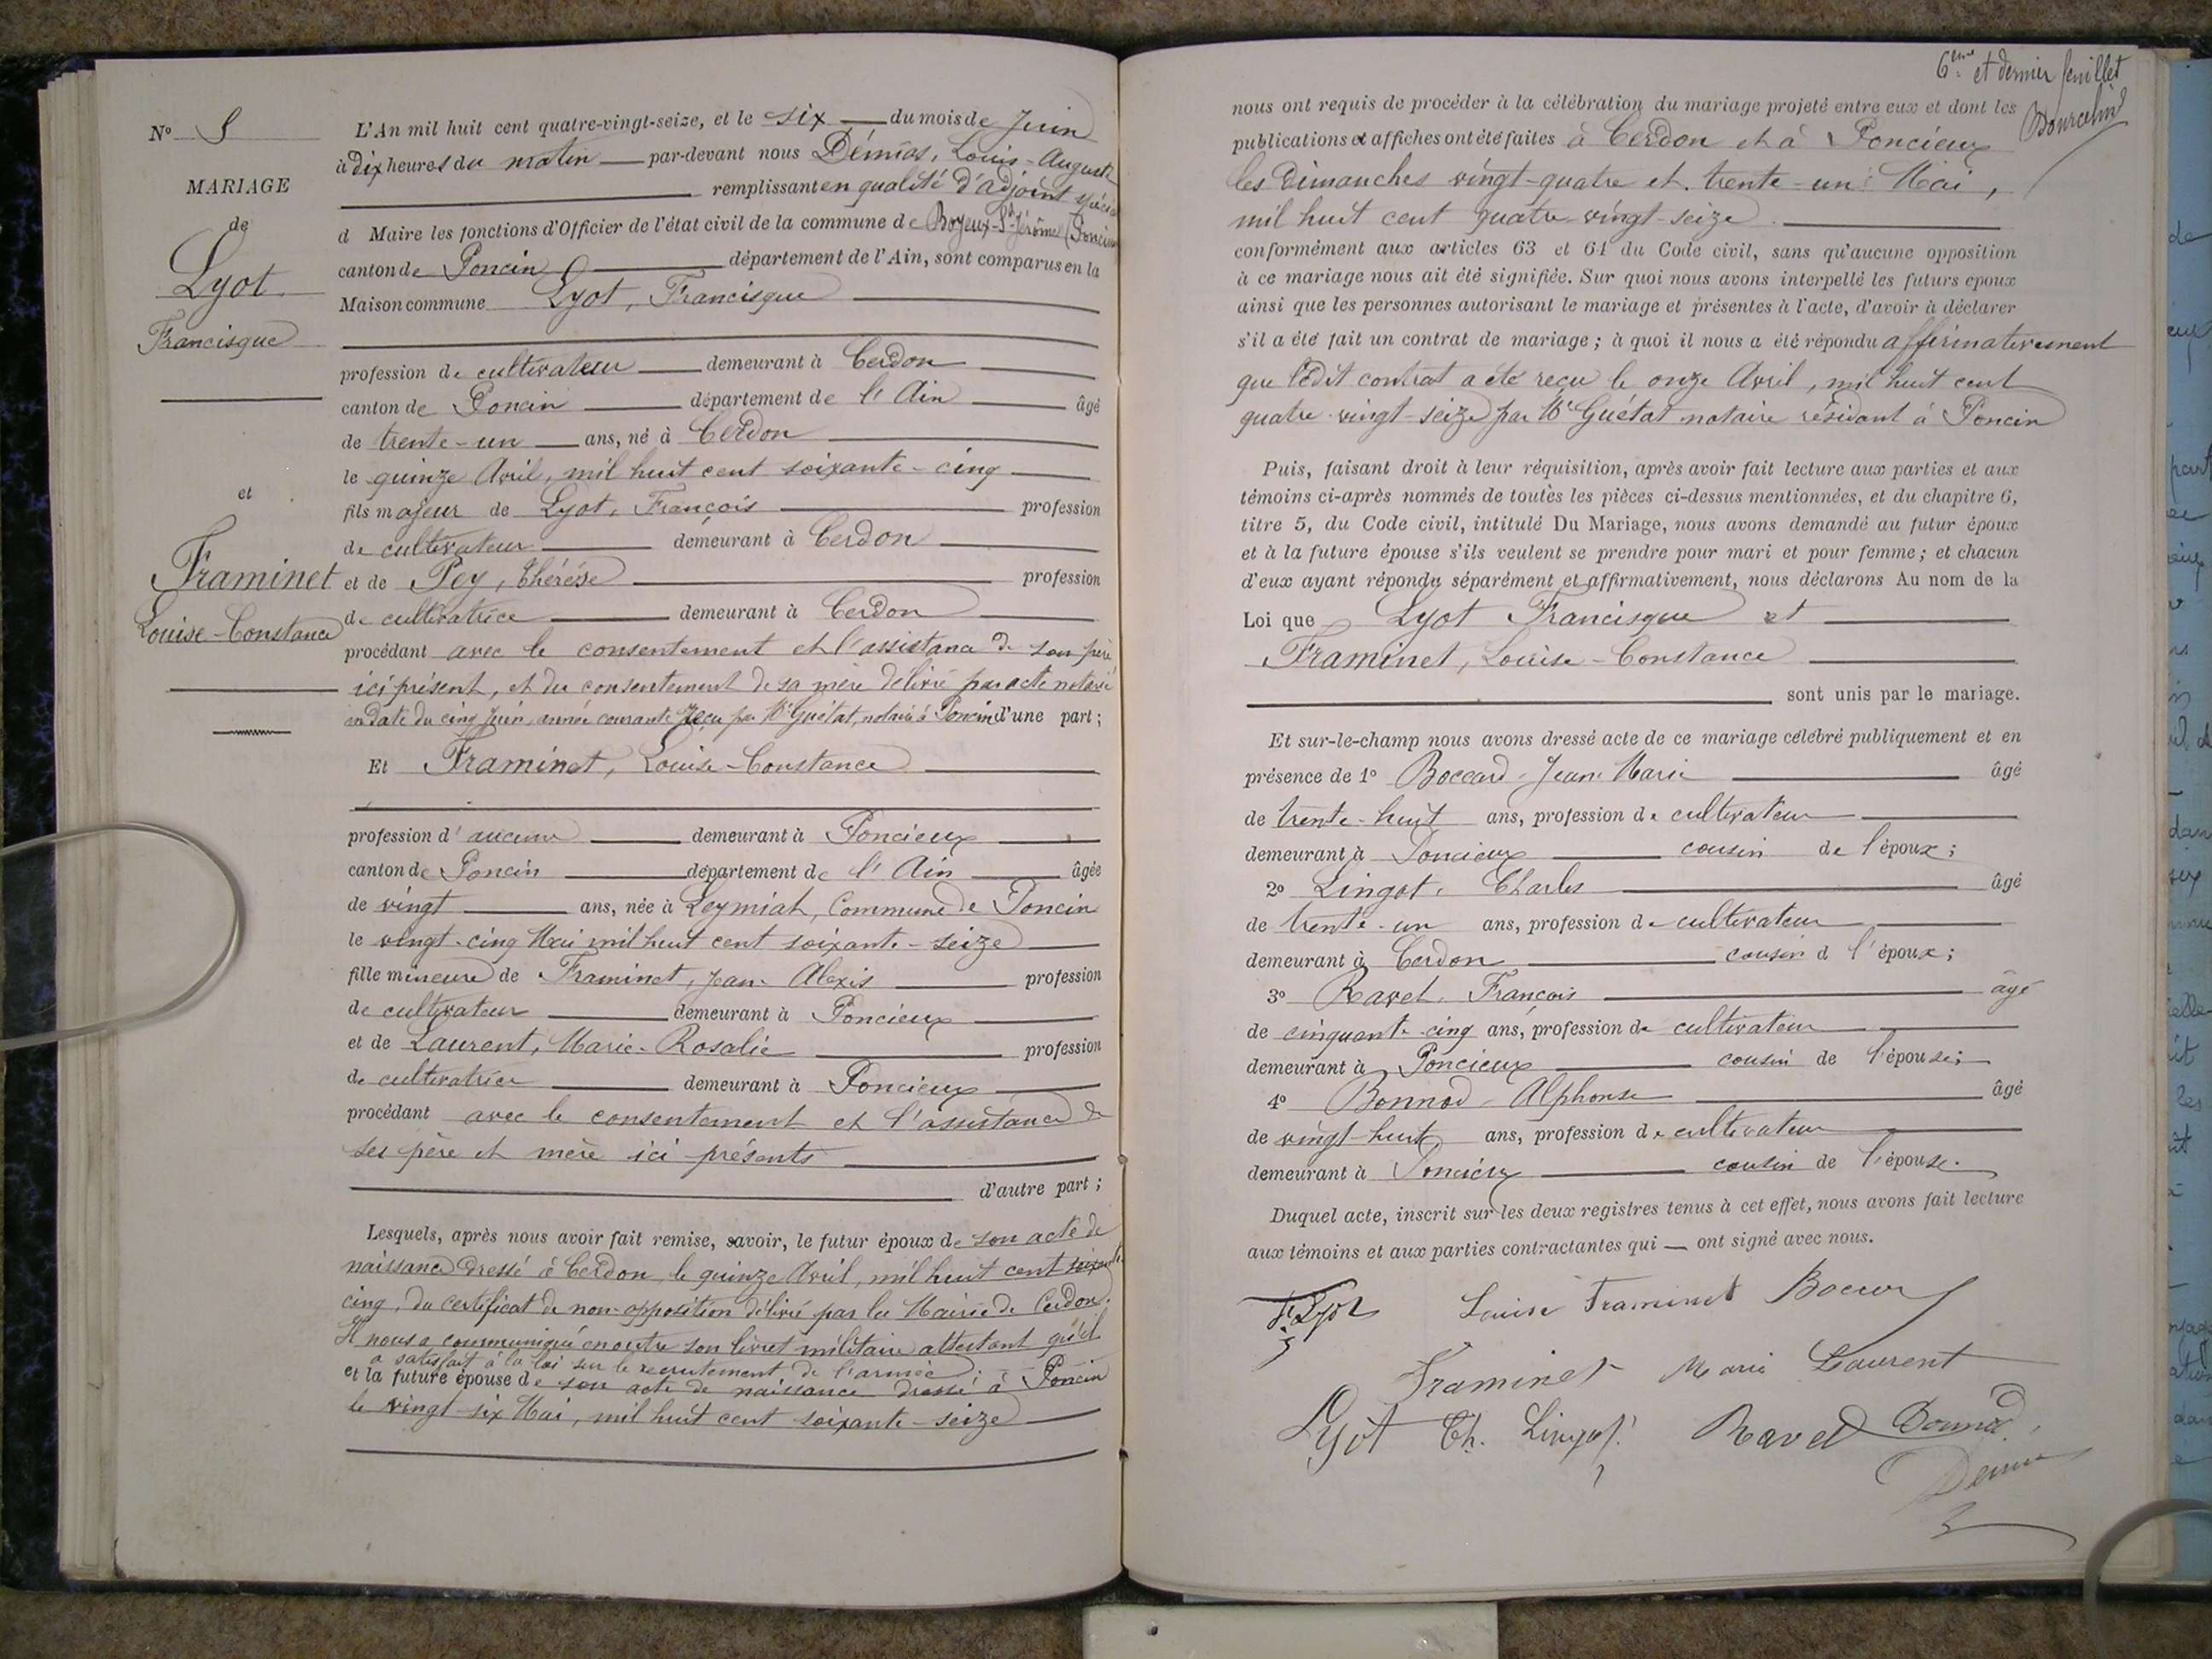 N° 5
MARIAGE
de
Lyot
Francisque
et
Framinet
Louise-Constance
L'An mil huit cent quatre-vingt-seize, et le six du mois de Juin
à dix heures du matin par-devant nous Démias, Louis-Auguste
remplissant en qualité d'adjoint spécial
d Maire les fonctions d'Officier de l'état civil de la commune de Boyeux-St-Jérôme (Poncieux
canton de Poncin département de l'Ain, sont comparus en la
Maison commune Lyot, Francisque
profession de cultivateur demeurant à Cerdon
canton de Poncin département de l'Ain âgé
de trente-un ans, né à Cerdon
le quinze Avril, mil huit cent soixante-cinq
fils majeur de Lyot, François profession
de cultivateur demeurant à Cerdon
et de Pey, Thérèse profession
de cultivatrice demeurant à Cerdon
procédant avec le consentement et l'assistance de son père
ici présent, et du consentement de sa mère délivré par acte notarié
en date du cinq Juin, année courante reçu par Me Guétat, notaire à Poncin d'une part;
Et Framinet, Louise-Constance
profession d'aucune demeurant à Poncieux
canton de Poncin département de l'Ain âgée
de vingt ans, née à Leymiat, Commune de Poncin
le vingt-cinq Mai mil huit cent soixante-seize
fille mineure de Framinet, Jean-Alexis profession
de cultivateur demeurant à Poncieux
et de Laurent, Marie-Rosalie profession
de cultivatrice demeurant à Poncieux
procédant avec le consentement et l'assistance de
ses père et mère ici présents
d'autre part;
Lesquels, après nous avoir fait remise, savoir, le futur époux de son acte de
naissance dressé à Cerdon, le quinze Avril, mil huit cent soixante
cinq, du certificat de non-opposition délivré par la Mairie de Cerdon.
Il nous a communiqué en outre son livret militaire attestant qu'il
a satisfait à la loi sur le recrutement de l'armée;
et la future épouse de son acte de naissance dressé à Poncin
le vingt-six Mai, mil huit cent soixante-seize
6ème et dernier feuillet
nous ont requis de procéder à la célébration du mariage projeté entre eux et dont les
publications et affiches ont été faites à Cerdon et à Poncieux
les Dimanches vingt-quatre et trente-un Mai,
mil huit cent quatre-vingt-seize
conformément aux articles 63 et 64 du Code civil, sans qu'aucune opposition
à ce mariage nous ait été signifiée. Sur quoi nous avons interpellé les futurs epoux
ainsi que les personnes autorisant le mariage et présentes à l'acte, d'avoir à déclarer
s'il a été fait un contrat de mariage; à quoi il nous a été répondu affirmativement
que ledit contrat a été reçu le onze Avril, mil huit cent
quatre-vingt-seize par Me Guétat notaire résidant à Poncin
Puis, faisant droit à leur réquisition, après avoir fait lecture aux parties et aux
témoins ci-après nommés de toutes les pièces ci-dessus mentionnées, et du chapitre 6,
titre 5, du Code civil, intitulé Du Mariage, nous avons demandé au futur époux
et à la future épouse s'ils veulent se prendre pour mari et pour femme; et chacun
d'eux ayant répondu séparément et affirmativement, nous déclarons Au nom de la
Loi que Lyot Francisque et
Framinet, Louise-Constance
sont unis par le mariage.
Et sur-le-champ nous avons dressé acte de ce mariage célébré publiquement et en
présence de 1° Boccard, Jean-Marie âgé
de trente-huit ans, profession de cultivateur
demeurant à Poncieux cousin de l'époux;
2° Lingot, Charles âgé
de trente-un ans, profession de cultivateur
demeurant à Cerdon cousin d l'époux;
3° Ravet, François âgé
de cinquante-cinq ans, profession de cultivateur
demeurant à Poncieux cousin de l'épouse;
4° Bonnod, Alphonse âgé
de vingt-huit ans, profession de cultivateur
demeurant à Poncieux cousin de l'épouse.
Duquel acte, inscrit sur les deux registres tenus à cet effet, nous avons fait lecture
aux témoins et aux parties contractantes qui ont signé avec nous.
F. Lyot Louise Framinet
Framinet Marie Laurent
Lyot Ch. Lingot Ravet Bonnod